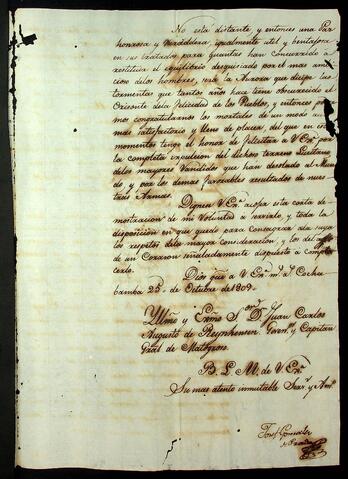 No está distante, y entonces una Paz
honrosa y verdadera, igualmente util y bentajosa
en sus tratados para quantas han concurrido á
restituir el equilibrio desquiciado por el mas am
cion de los hombres, será la Aurora que disipe las
tormentas que tantos años hace tiene obscurecido el
Orizonte de la felicidad de los Pueblos, y entonces po
mos congratularnos los mortales de un modo
mas satisfactorio y lleno de placer, del que en
momentos tengo el honor de felicitar á V. Exª. por
la completa expulcion del dichoso terreno Lucitano
de los mayores Vandidos que han desolado al Mun
do, y por los demas favorables resultados de nues
tras Armas.
Dignese V. Exª. acojer esta corta de
mostracion de mi Voluntad á servirle, y toda la
disposicion en que quedo para consagrar á la suya
los respetos de la mayor consideracion, y los
de un Corazon señaladamente dispuesto a compla
cerlo.
Dios gue. á V. Exª. ms. as. Cocha
bamba 25 de Octubre de 1809.
Yllmo y Exmo Sor. Dn. Juan Carlos
Augusto de Geinhensen. Governor. y Capitan
Gral. de Matogroso.
B. L. M. de V. Exª.
Su mas atento inmutable Servr. y
Josef Gonzalez
de Prada